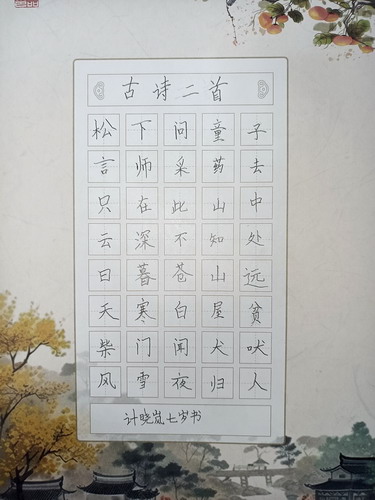 古诗二首
松下问童子
言师采药去
只在此山中
云深不知处
日暮苍山远
天寒白屋贫
柴门闻犬吠
风雪夜归人
计晓岚七岁书